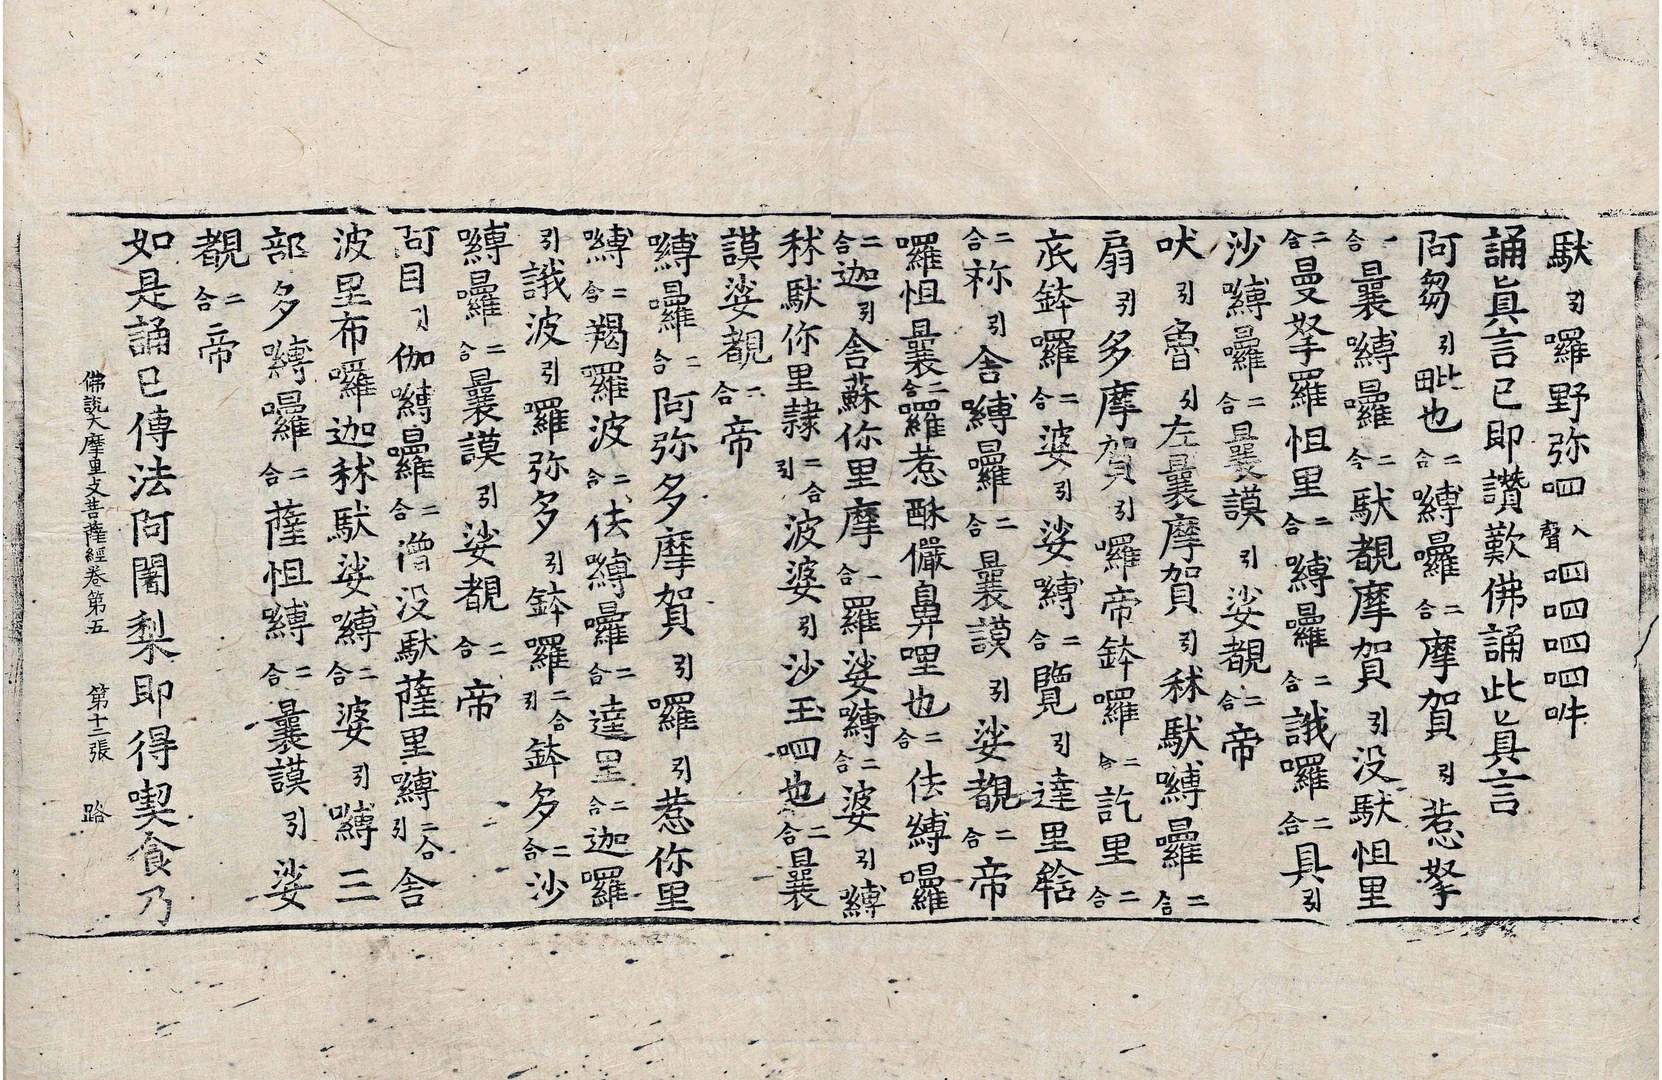 馱引囉野弥呬入聲呬呬呬呬吽
誦眞言已即讚歎佛誦此眞言
阿芻引毗也二合嚩囉二合摩賀引惹拏
一合曩嚩囉二合馱覩摩賀引没馱怛里
二合曼拏羅怛里二合嚩囉二合誐囉二合具引
沙嚩囉二合曩謨引娑覩二合帝
吠引魯引左曩摩賀引秫馱嚩囉二合
扇引多摩賀引囉帝鉢囉二合訖里二合
底鉢囉二合婆引娑嚩二合覽引達里
二合祢引舍嚩囉二合曩謨引娑覩二合帝
囉怛曩二合囉惹酥儼鼻哩也二合佉嚩囉
二合迦引舍蘇你里摩一合羅娑嚩二合婆引嚩
秫馱你里隷二合引波婆引沙玉呬也二合曩
謨娑覩二合帝
嚩囉二合阿弥多摩賀引囉引惹你里
嚩二合羯羅波二合佉嚩囉二合達里二合迦囉
引誐波引囉弥多引鉢囉二合引鉢多二合沙
嚩囉二合曩謨引娑覩二合帝
阿目引伽嚩囉二合澘没馱薩里嚩二合引舍
波里布囉迦秫馱娑嚩二合婆引嚩三
部多嚩囉二合薩怛嚩二合曩謨引娑
覩二合帝
如是誦已傳法阿闍梨即得喫食乃
佛說大摩里支菩薩經卷第五 第十三張 路